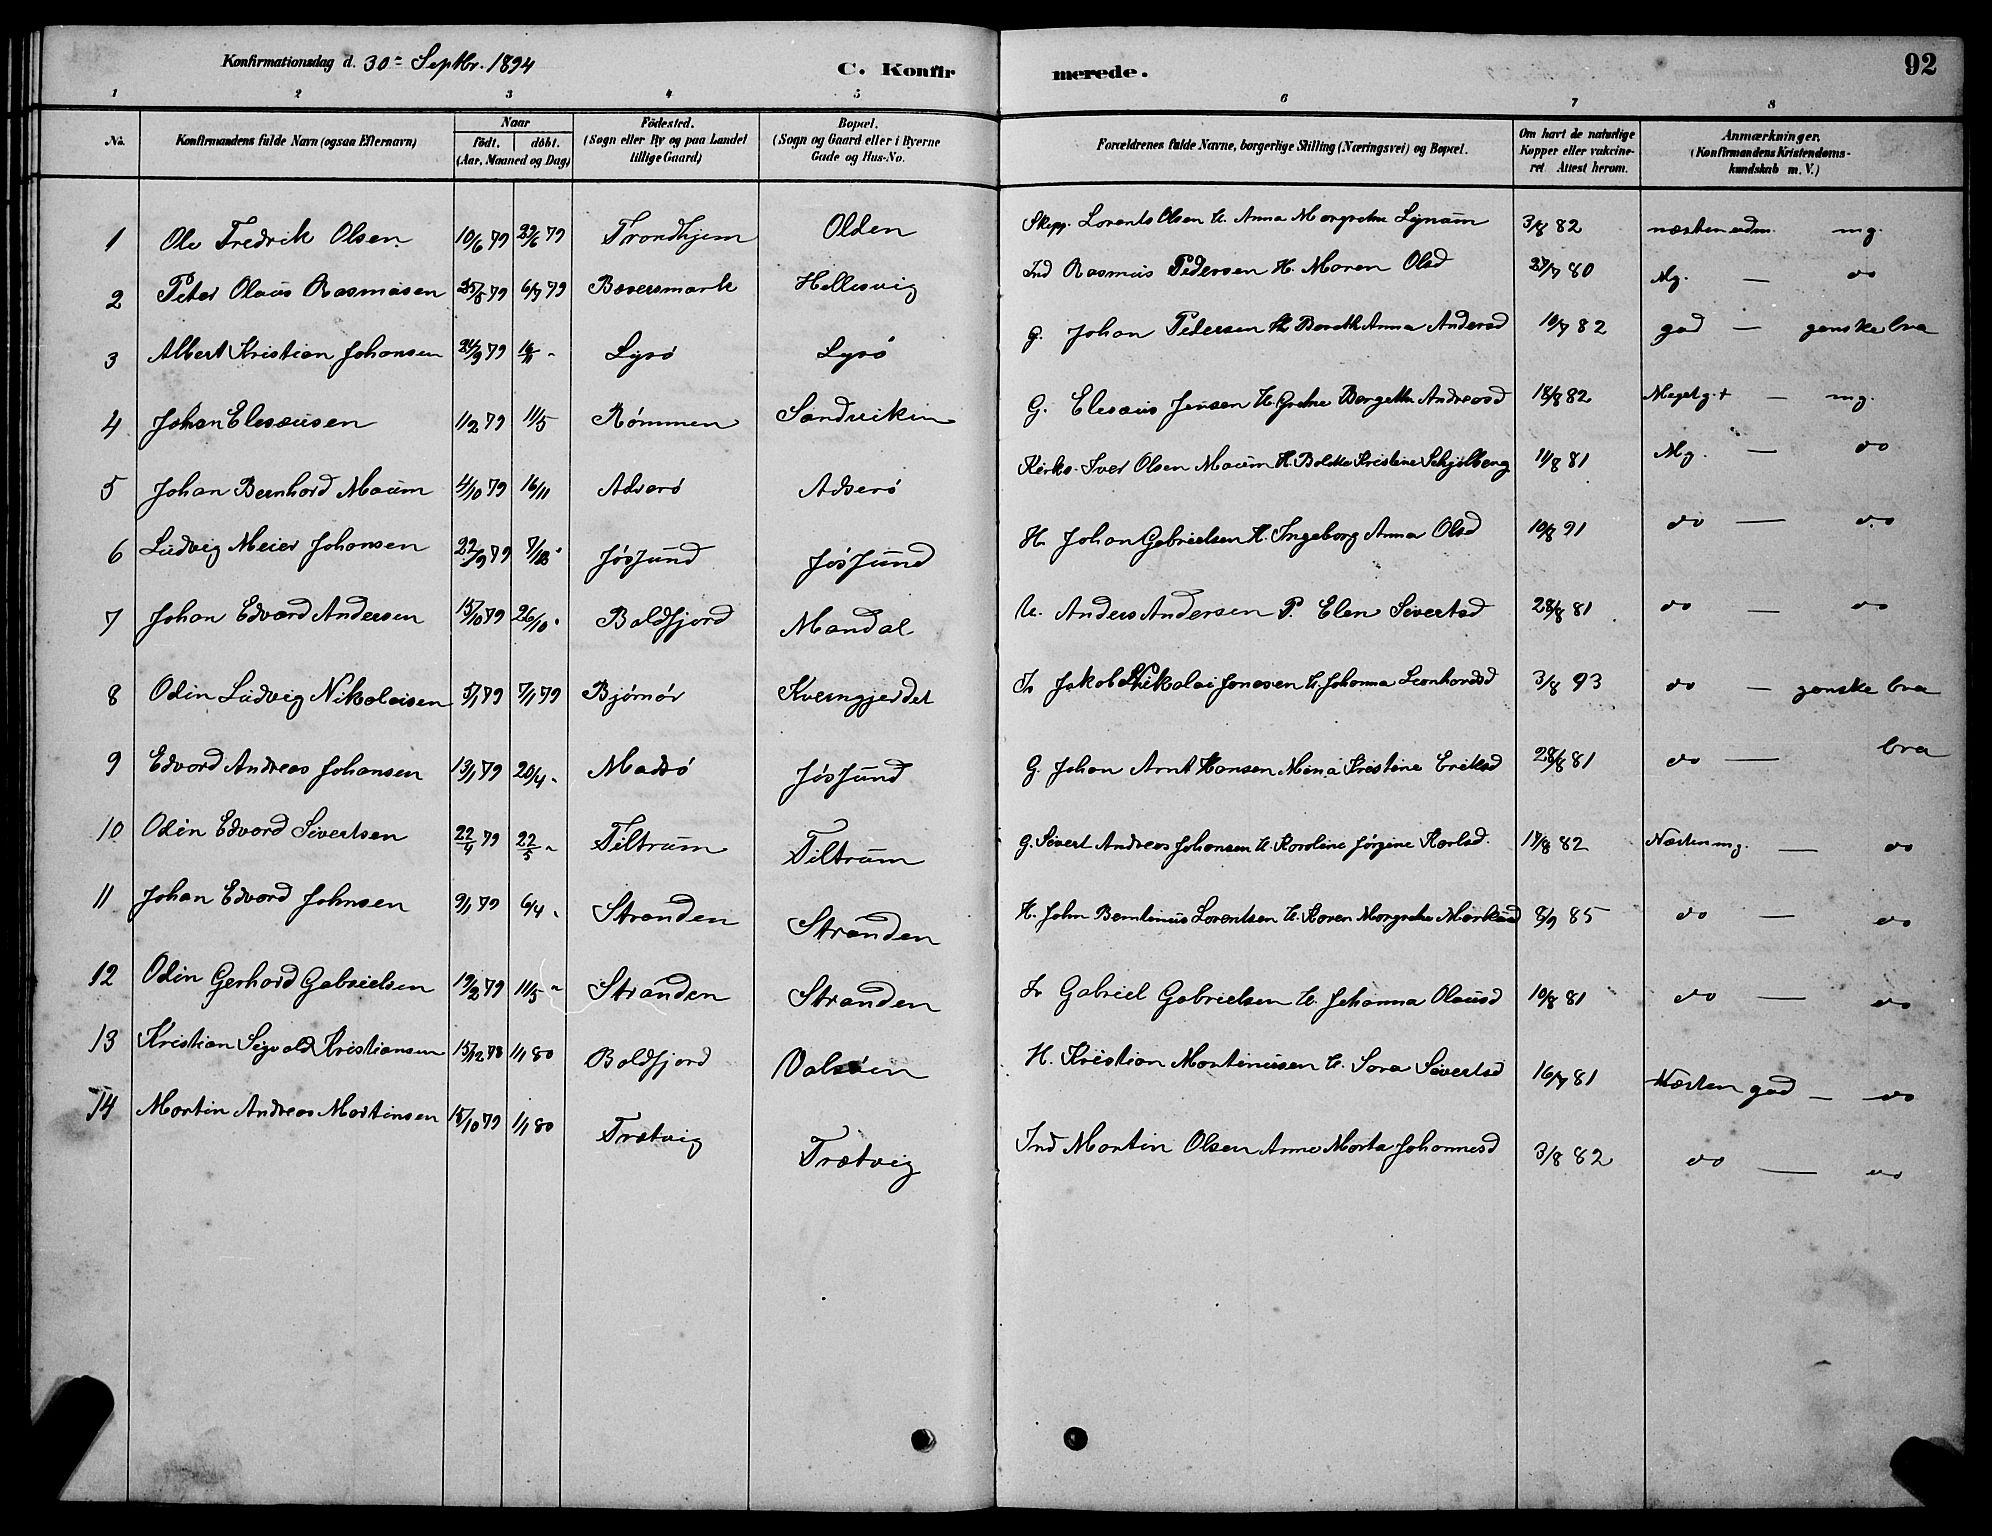 Konfirmationsdag d. 30= Septbr. 1894 C. Konfirmerede. 92
1 2 3 4 5 6 7 8
No. Konfirmandens fulde Navn (ogsaa Efternavn) Naar födt. döbt. (Aar, Maaned og Dag) Födested. (Sogn eller By og paa Landet tillige Gaard) Bopæl. (Sogn og Gaard eller i Byerne Gade og Hus-No. Forældrenes fulde Navne, borgerlige Stilling (Næringsvei) og Bopæl. Om havt de naturlige Kopper eller vakcineret Attest herom. Anmærkninger. (Konfirmandens Kristendomskundskab m. V.)
1 Ole Fredrik Olsen 10/6 79 29/6 79 Trondhjem Olden Skipp. Lorents Olsen H. Anna Margrethe 3/8 82 næsten mg.
2 Peter Olaus Rasmusen 25/5 79 6/7 79 Hellesvig Ind Rasmus Pedersen H. Maren Olsd 27/7 80 Mg. — do
3 Albert Kristian Johansen 24/9 79 16/11 " Lysö Lysö G. Johan Pedersen H. Bereth Anna Andersd 10/7 82 god — ganske bra
4 Johan Elesæusen 11/2 79 11/5 Rømmen Sandviken G. Elesæus Jensen H. Grethe Bergette Andreasd 18/8 82 Meget g.+ — mg.
5 Johan Bernhard Maum 4/10 79 16/11 Adserö Kirks. Iver Olsen Maum H. Kristine Schjelberg 11/8 81 Mg. — do
6 Ludvig Meier Johansen 22/9 79 Jøssund Jøssund H. Johan Gabrielsen H. Ingeborg Anna Olsd 10/8 91 do — do
7 Johan Edvard Andersen 15/10 79 26/10 " Boldfjord Mandal U. Anders Andersen P. Elen Sivertsd 28/8 81 do — do
8 Odin Ludvig Nikolaisen 5/1 79 7/1 79 Bjørnør Kverngjerdet Is Jakob Nikolai Jonasen H. Johanna Leonhardsd 3/8 93 do — ganske bra
9 Edvard Andreas Johansen 13/1 79 20/4 " Madsö Jøssund G. Johan Arnt Hansen Mina Kristine Eriksd 28/8 81 do — bra
10 Odin Edvard Sivertsen 22/4 79 22/5 " Tiltrum Tiltrum G. Sivert Andreas Johansen H. Karoline Jørgine Karlsd. 17/8 82 Næsten mg. — do
11 Johan Edvard Johnsen 9/1 79 6/4 " Stranden Stranden H. John Lorentsen H. Karen Margrethe 8/9 85 do — do
12 Odin Gerhard Gabrielsen 19/2 79 11/5 " Stranden Stranden Is Gabriel Gabrielsen H. Johanna Olausd 10/8 81 do — do
13 Kristian Sigvald Kristiansen 15/12 78 1/1 80 Boldfjord Valsöen H. Kristian Martinusen H. Sara Sivertsd 16/7 81 Næsten god — do
14 Martin Andreas Martinsen 15/10 79 1/1 80 Trætvig Trætvig Ind Martin Olsen Anne Marta Johannesd 3/8 82 do — do